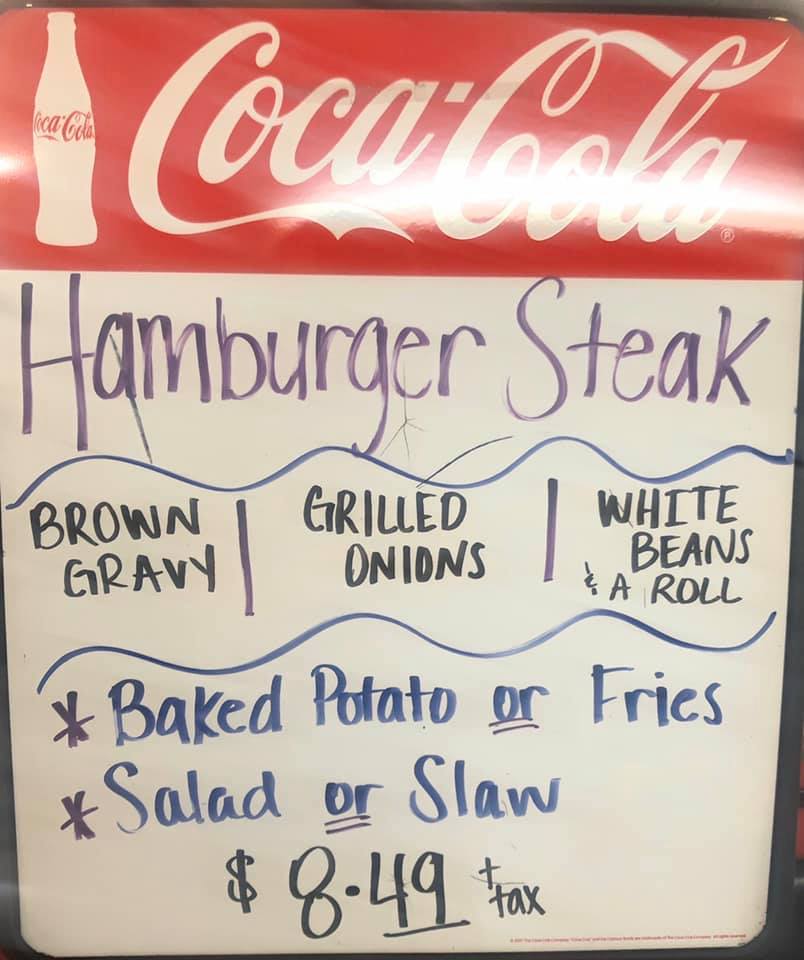 Coca-Cola
Coca-Cola ®
Hamburger Steak
BROWN GRAVY
GRILLED ONIONS
WHITE BEANS & A ROLL
* Baked Potato or Fries
* Salad or Slaw
$ 8.49 + tax